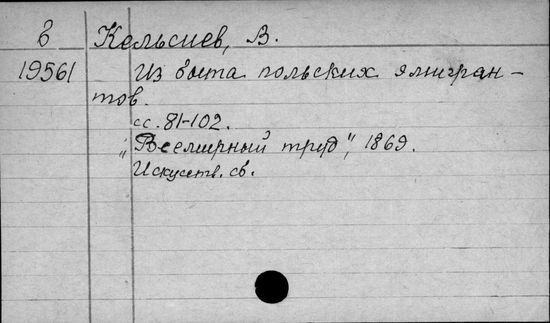 6 Кельсиев, В.
19561 Из быта польских эмигран-
тов.
сс. 81-102.
"Всемирный труд", 1869.
Искусств. св.